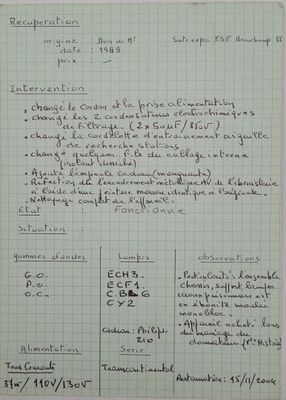 Recuperation
origine : Don de Mr
Suite expo T.S.F. Beauchamp 88
date : 1989
prix : -
Intervention
. changé le cordon et la prise alimentation
. changé les 2 condensateurs electrochimiques
de filtrage. (2x50µF/350V)
. changé la cordelette d'entrainement aiguille
de recherche stations
. changé quelques fils du câblage interne
(isolant dénudé)
. Ajouté l'ampoule cadran (manquante)
. Réfection de l'encadrement métallique AV de l'ébénisterie
à l'aide d'une peinture marron identique à l'originale.
. Nettoyage complet de l'appareil.
Etat : Fonctionne
Situation
gammes d'ondes
Lampes
observations
G.O.
P.O.
O.C.
ECH3.
ECF1.
CBL6
CY2
cadran: Philips.
210
. Particularité: l'ensemble
chassis, support lampes
cadran prisonniers est
en ébonite moulée
monobloc.
. Appareil acheté lors
du mariage du
donateur (Pte Histoire)
Alimentation
Serie
Tous Courants
Transcontinental
110V/130V
Restauration: 15/11/2004